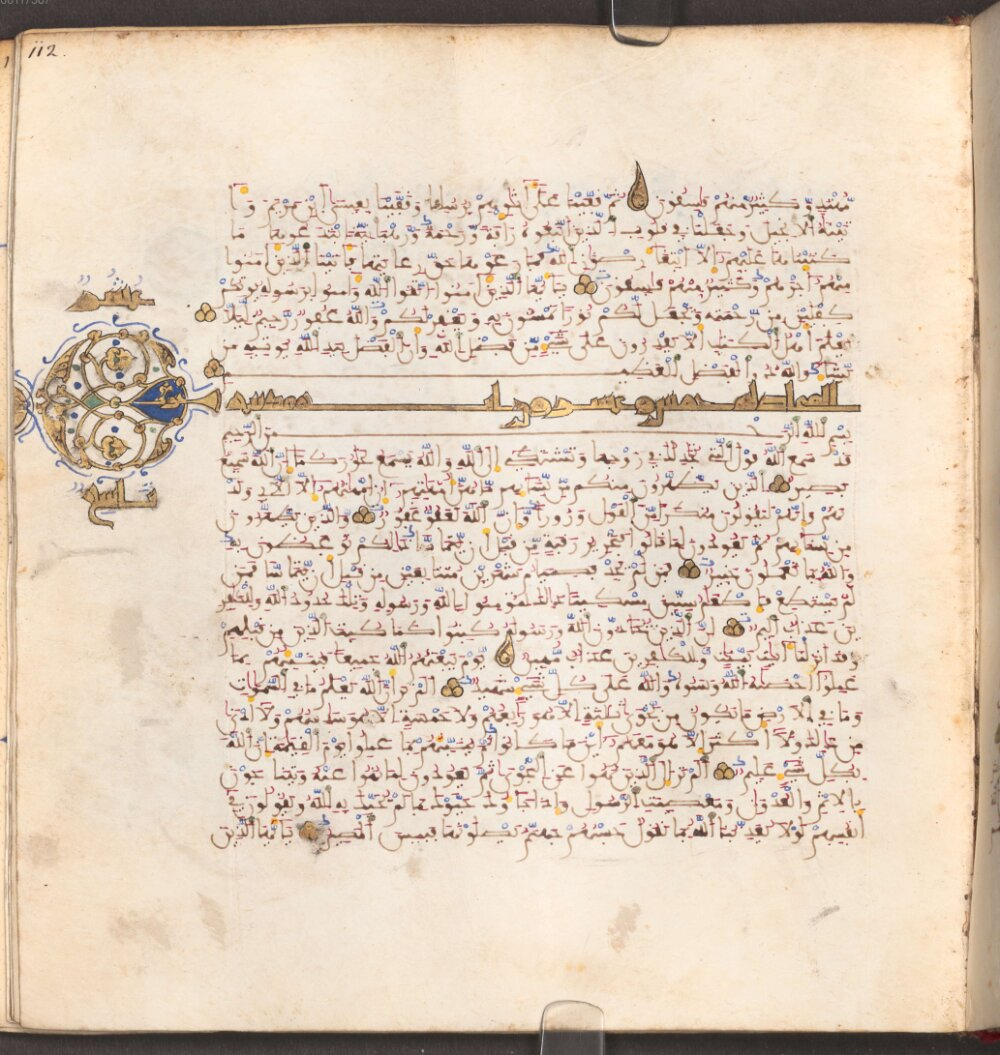 112.
مهتد وكثير منهم فاسقون ثم قفينا على ءاثرهم برسلنا وقفينا بعيسى ابن مريم وءا
تينه الانجيل وجعلنا في قلوب الذين اتبعوه رأفة ورحمة ورهبانية ابتدعوها ما
كتبنها عليهم إلا ابتغاء رضون الله فما رعوها حق رعايتها فـاتينا الذين ءامنوا
منهم أجرهم وكثير منهم فسقون يأيها الذين ءامنوا اتقوا الله وءامنوا برسوله يؤتكم
كفلين من رحمته ويجعل لكم نورا تمشون به ويغفر لكم والله غفور رحيم ليلا
يعلم أهل الكتب ألا يقدرون على شيء من فضل الله وأن الفضل بيد الله يؤتيه من
يشاء والله ذو الفضل العظيم
المجادلة
بسم الله الرحمن الرحيم
قد سمع الله قول التي تجدلك في زوجها وتشتكي إلى الله والله يسمع تحاوركما إن الله سميع
بصير الذين يظهرون منكم من نسايهم ما هن أمهتهم إن أمهتهم إلا الئ ولد
نهم وإنهم ليقولون منكرا من القول وزورا وإن الله لعفو غفور والذين يظهرون
من نسايهم ثم يعودون لما قالوا فتحرير رقبة من قبل أن يتماسا ذلكم توعظون به
والله بما تعملون خبير فمن لم يجد فصيام شهرين متتابعين من قبل أن يتماسا فمن
لم يستطع فإطعام ستين مسكينا ذلك لتومنوا بالله ورسوله وتلك حدود الله وللكفر
ين عذاب أليم إن الذين يحادون الله ورسوله كبتوا كما كبت الذين من قبلهم
وقد أنزلنا ءايت بينت وللكفرين عذاب مهين يوم يبعثهم الله جميعا فينبئهم بما
عملوا أحصيه الله ونسوه والله على كل شيء شهيد ألم تر أن الله يعلم ما في السموت
وما في الأرض ما يكون من نجوى ثلثة إلا هو رابعهم ولا خمسة إلا هو سادسهم ولا أدنى
من ذلك ولا أكثر إلا هو معهم أين ما كانوا ثم ينبئهم بما عملوا يوم القيمة إن الله
بكل شيء عليم ألم تر إلى الذين نهوا عن النجوى ثم يعودون لما نهوا عنه ويتنجون
بالاثم والعدون ومعصيت الرسول وإذا جاءوك حيوك بما لم يحيك به الله ويقولون في
أنفسهم لولا يعذبنا الله بما نقول حسبهم جهنم يصلونها فبيس المصير يأيها الذين